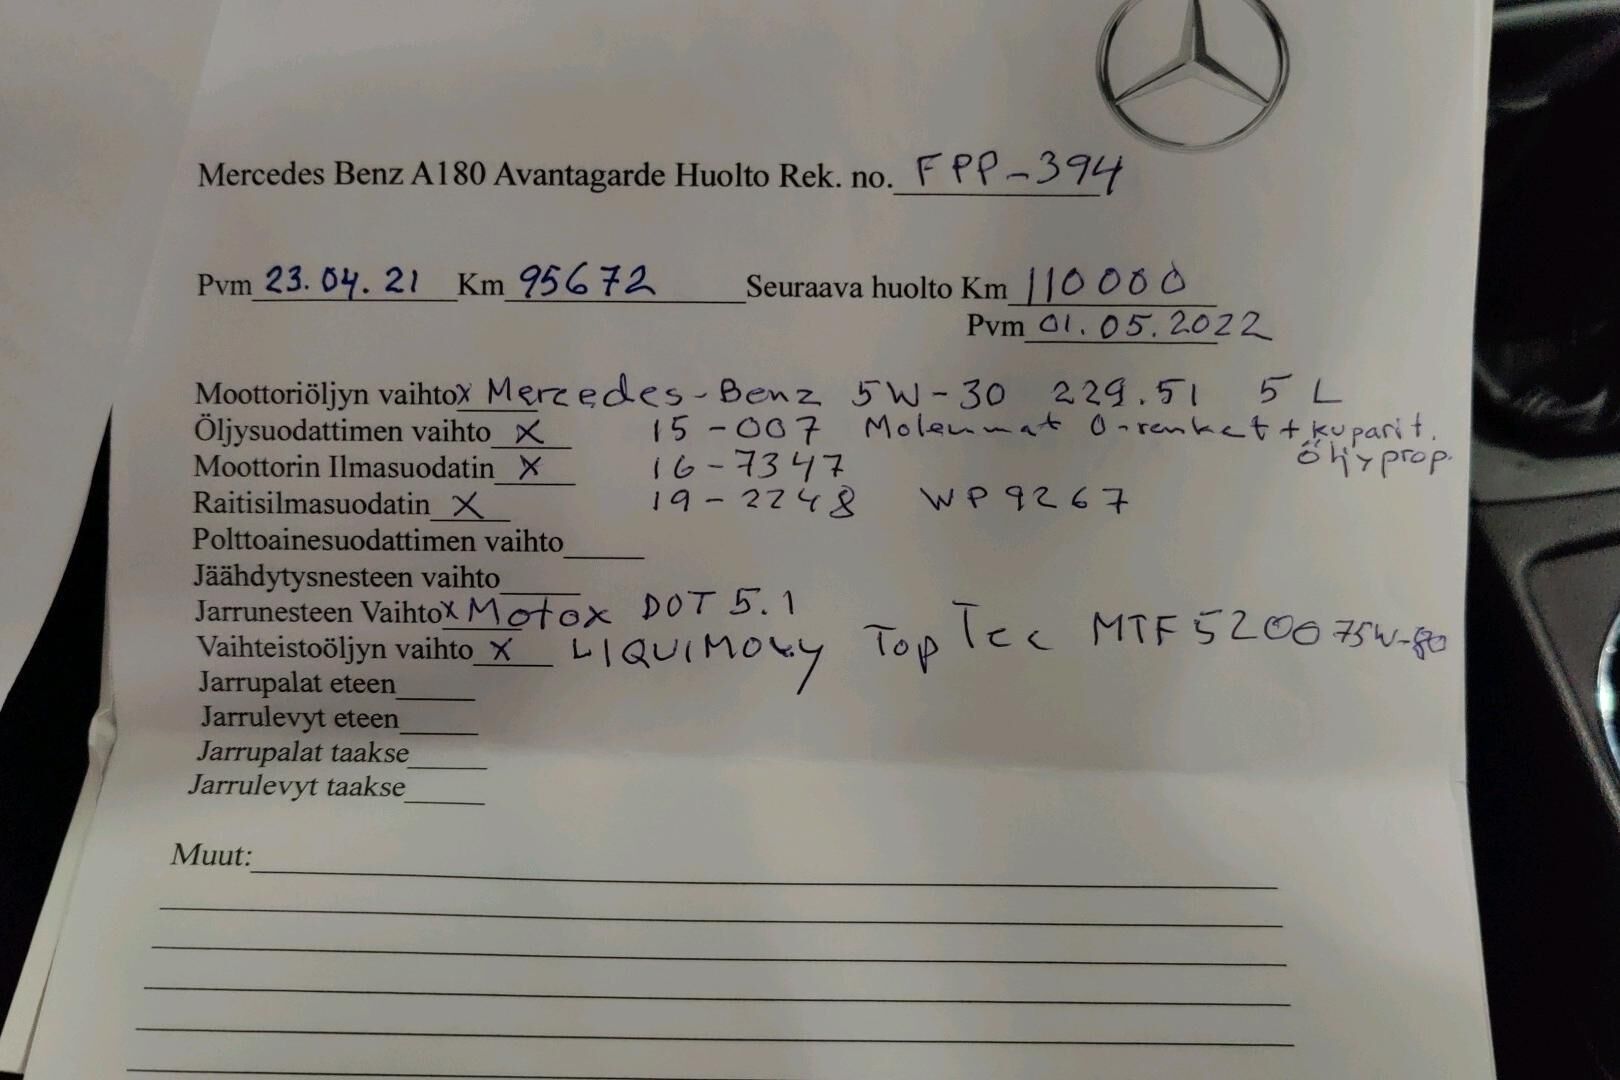 Mercedes Benz A180 Avantagarde Huolto Rek. no. FPP-394
Pvm 23.04.21 Km 95672 Seuraava huolto Km 110000
Pvm 01.05.2022
Moottoriöljyn vaihto x Mercedes-Benz 5W-30 229.51 5 L
Öljysuodattimen vaihto x 15-007 Molemmat O-renkat + kuparit.
öljyprop.
Moottorin Ilmasuodatin x 16-7347
Raitisilmasuodatin x 19-2248 WP9267
Polttoainesuodattimen vaihto
Jäähdytysnesteen vaihto
Jarrunesteen Vaihto x Motox DOT 5.1
Vaihteistoöljyn vaihto x LIQUIMOLY Top Tec MTF5200 75W-80
Jarrupalat eteen
Jarrulevyt eteen
Jarrupalat taakse
Jarrulevyt taakse
Muut: